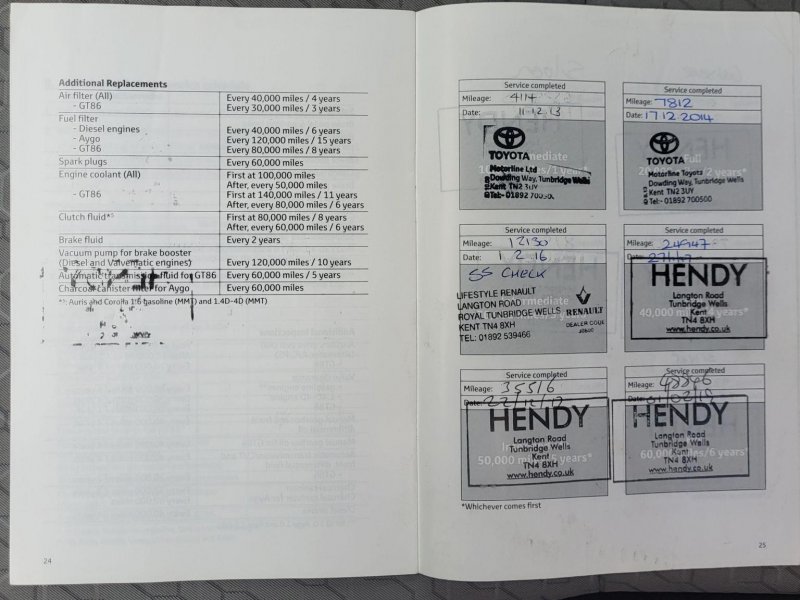 Additional Replacements
Air filter (All) Every 40,000 miles / 4 years
- GT86 Every 30,000 miles / 3 years
Fuel filter
- Diesel engines Every 40,000 miles / 6 years
- Aygo Every 120,000 miles / 15 years
- GT86 Every 80,000 miles / 8 years
Spark plugs Every 60,000 miles
Engine coolant (All) First at 100,000 miles
After, every 50,000 miles
- GT86 First at 140,000 miles / 11 years
After, every 80,000 miles / 6 years
Clutch fluid*⁵ First at 80,000 miles / 8 years
After, every 60,000 miles / 6 years
Brake fluid Every 2 years
Vacuum pump for brake booster
(Diesel and Valvematic engines) Every 120,000 miles / 10 years
Automatic transmission fluid for GT86 Every 60,000 miles / 5 years
Charcoal canister filter for Aygo Every 60,000 miles
*⁵: Auris and Corolla 1.6 gasoline (MMT) and 1.4D-4D (MMT)
24
Service completed
Mileage: 4114
Date: 11.12.13
TOYOTA
Motorline Ltd
Dowding Way, Tunbridge Wells
Kent TN2 3UY
Tel:- 01892 700500
Service completed
Mileage: 7812
Date: 17 12 2014
TOYOTA
Motorline Toyota
Dowding Way, Tunbridge Wells
Kent TN2 3UY
Tel:- 01892 700500
Service completed
Mileage: 12130
Date: 1.2.16
SS CHECK
LIFESTYLE RENAULT
LANGTON ROAD
ROYAL TUNBRIDGE WELLS
KENT TN4 8XH
TEL: 01892 539466
RENAULT
DEALER CODE
Service completed
Mileage: 24947
Date:
HENDY
Langton Road
Tunbridge Wells
Kent
TN4 8XH
www.hendy.co.uk
40,000 miles/4 years*
Service completed
Mileage: 35516
Date: 22/12/17
HENDY
Langton Road
Tunbridge Wells
Kent
TN4 8XH
www.hendy.co.uk
50,000 miles/5 years*
Service completed
Mileage:
Date:
HENDY
Langton Road
Tunbridge Wells
Kent
TN4 8XH
www.hendy.co.uk
60,000 miles/6 years*
*Whichever comes first
25